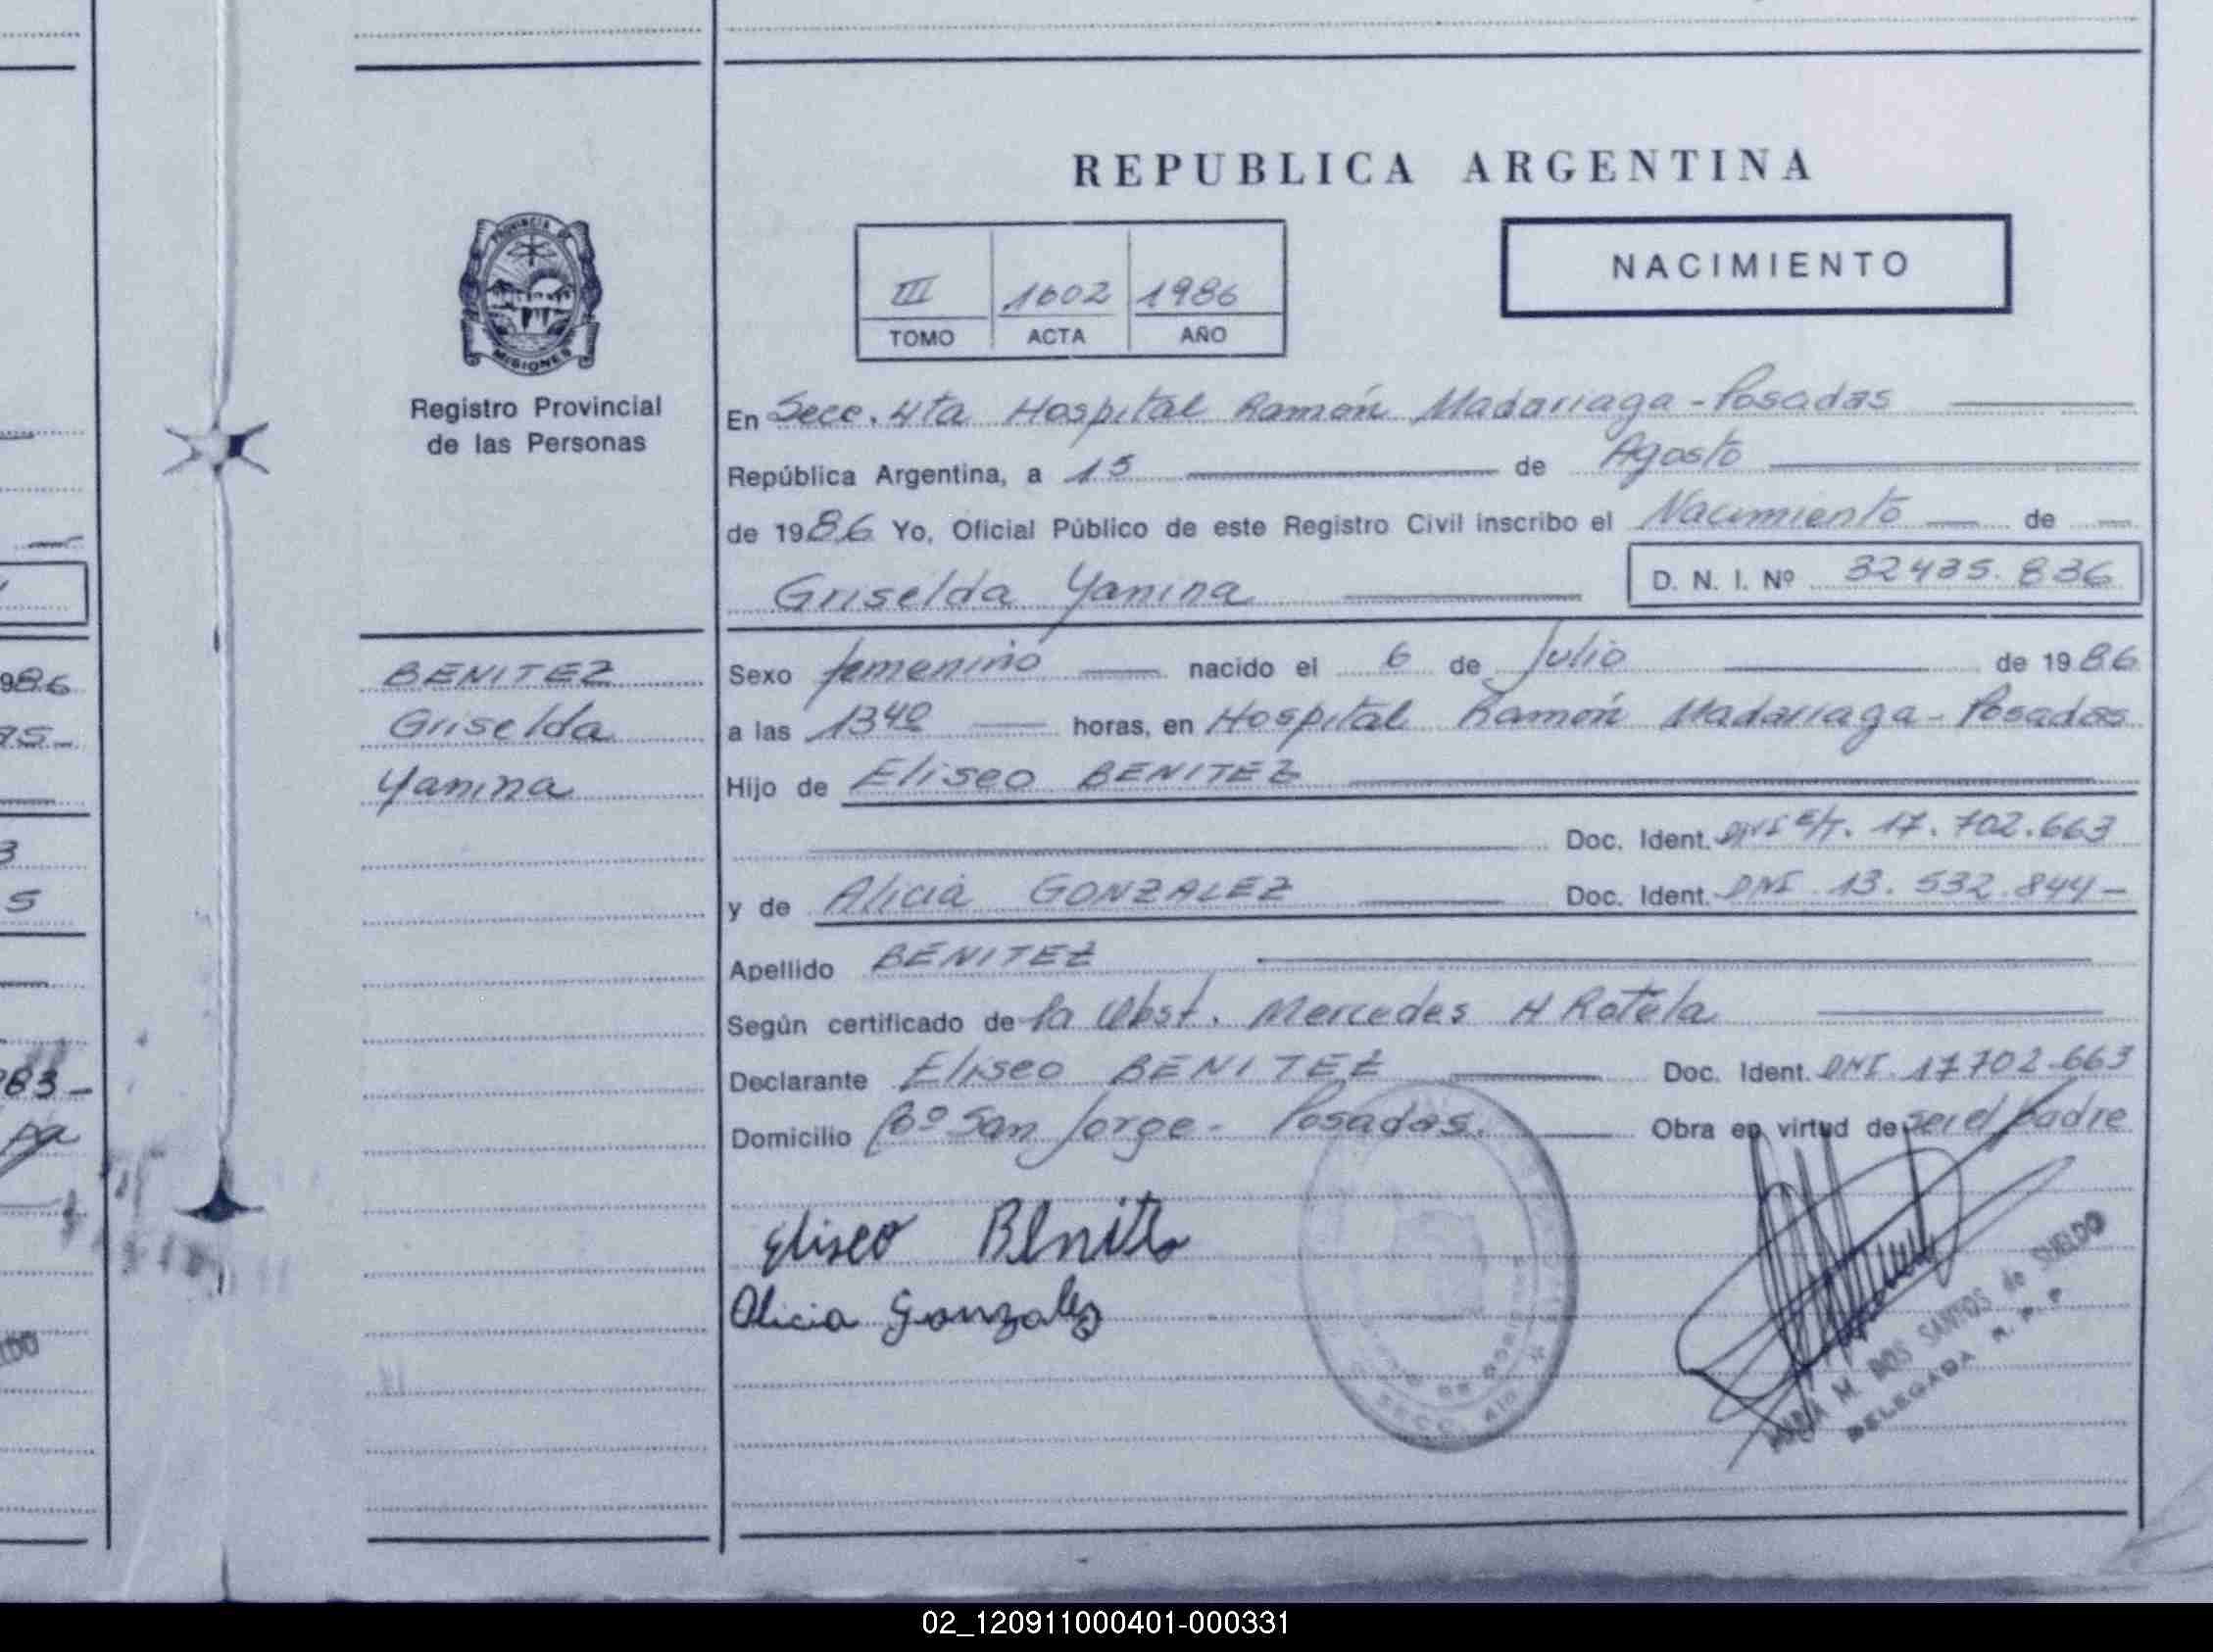 REPUBLICA ARGENTINA
PROVINCIA DE
MISIONES
Registro Provincial
de las Personas
III 1602 1986
TOMO ACTA AÑO
NACIMIENTO
En Secc. 4ta Hospital Ramón Madariaga - Posadas
República Argentina, a 15 de Agosto
de 1986 Yo, Oficial Público de este Registro Civil inscribo el Nacimiento de
Griselda Yanina D. N. I. Nº 32435.836
BENITEZ
Griselda
Yanina
Sexo femenino nacido el 6 de Julio de 1986
a las 13 40 horas, en Hospital Ramón Madariaga - Posadas
Hijo de Eliseo BENITEZ
Doc. Ident. DNI E/T. 17.702.663
y de Alicia GONZALEZ Doc. Ident. DNI 13.532.844-
Apellido BENITEZ
Según certificado de la Obst. Mercedes H Rotela
Declarante Eliseo BENITEZ Doc. Ident. DNI 17702.663
Domicilio Bº San Jorge - Posadas. Obra en virtud de ser el padre
Eliseo Benitez
Alicia Gonzalez
M. DOS SANTOS de SHELDO
DELEGADA R. P. P.
SECC. 4ta
986
as-
3
5
83-
pa
LDO
02_120911000401-000331